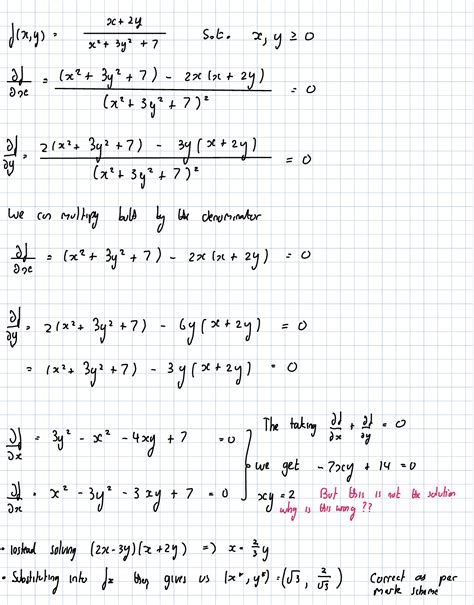 f(x,y) = x + 2y / x² + 3y² + 7 S.t. x, y ≥ 0
∂f/∂x = (x² + 3y² + 7) - 2x(x + 2y) / (x² + 3y² + 7)² = 0
∂f/∂y = 2(x² + 3y² + 7) - 3y(x + 2y) / (x² + 3y² + 7)² = 0
We can multiply both by the denominator
∂f/∂x = (x² + 3y² + 7) - 2x(x + 2y) = 0
∂f/∂y = 2(x² + 3y² + 7) - 6y(x + 2y) = 0
= (x² + 3y² + 7) - 3y(x + 2y) = 0
∂f/∂x = 3y² - x² - 4xy + 7 = 0
∂f/∂x = x² - 3y² - 3xy + 7 = 0
The taking ∂f/∂x + ∂f/∂y = 0
we get -7xy + 14 = 0
xy = 2 But this is not the solution
why is this wrong ??
• instead solving (2x-3y)(x+2y) => x = 3/2 y
• Substituting into fx then gives us (x*, y*) = (√3, 2/√3) Correct as per
mark scheme